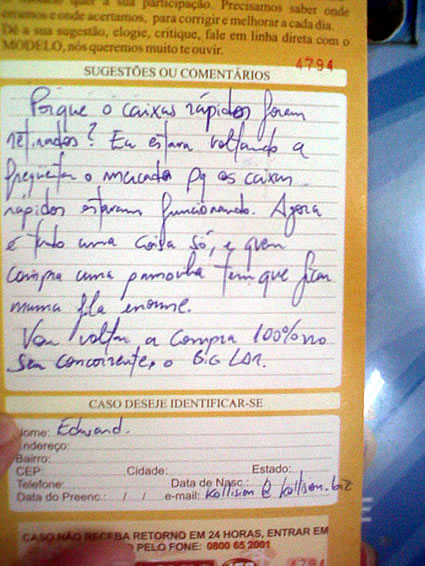 quer a sua participação. Precisamos saber onde
erramos e onde acertamos, para corrigir e melhorar a cada dia.
Dê a sua sugestão, elogie, critique, fale em linha direta com o
MODELO, nós queremos muito te ouvir.
4794
SUGESTÕES OU COMENTÁRIOS
Porque o caixas rápidos foram
retirados? Eu estava voltando a
freqüentar o mercado pq os caixas
rápidos estavam funcionando. Agora
é tudo uma coisa só, e quem
compra uma pamonha tem que ficar
numa fila enorme.
Vou voltar a compra 100% no
seu concorrente, o BIG LAR.
CASO DESEJE IDENTIFICAR-SE
Nome: Edward.
Endereço:
Bairro:
CEP: Cidade: Estado:
Telefone: Data de Nasc.:
Data do Preenc.: / / e-mail: kollision@kollision.biz
CASO NÃO RECEBA RETORNO EM 24 HORAS, ENTRAR EM
PELO FONE: 0800 65 2001
4794